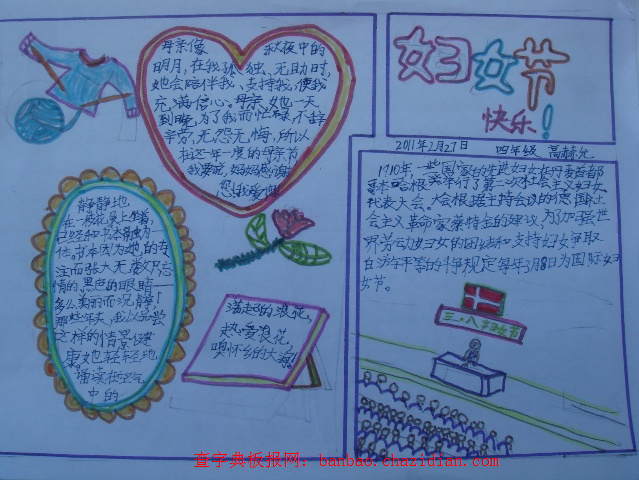 母亲像 秋夜中的
明月,在我孤独、无助时,
她会陪伴我、支持我,使我
充满信心。母亲,她一天
到晚,为了我而忙碌,不辞
辛劳,无怨无悔,所以
在这一年一度的母亲节
我要说,妈妈感谢
您!我爱您
妇女节
快乐!
2011年2月27日 四年级
1910年,一些国家的先进妇女在丹麦首都
哥本哈根举行了第二次社会主义妇女
代表大会。大会根据主持会议的德国社
会主义革命家蔡特金的建议,为了加强世
界劳动妇女的团结和支持妇女争取
自由平等的斗争,规定每年3月8日为国际妇
女节。
静静地
在一张花凳上坐着,
任。书本因为她的专
注而张大无数只忘
情的,黑色的眼睛——
多么美丽而沉静!
那些年头,我以品尝
这样的情景健
康她也轻轻地
诵读在空气
中的
满起的浪花,
热爱浪花,
嗅怀乡的大海!
三·八妇女节
查字典板报网:banbao.chazidian.com